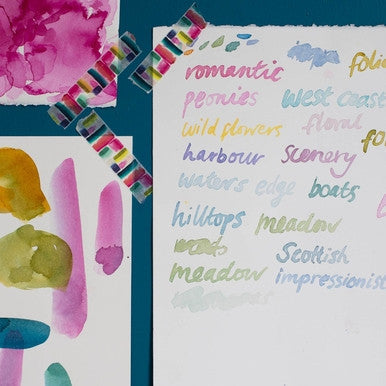 romantic
peonies west coast
wild flowers floral
harbour scenery
water's edge boats
hilltops meadow
Scottish
meadow impressionist